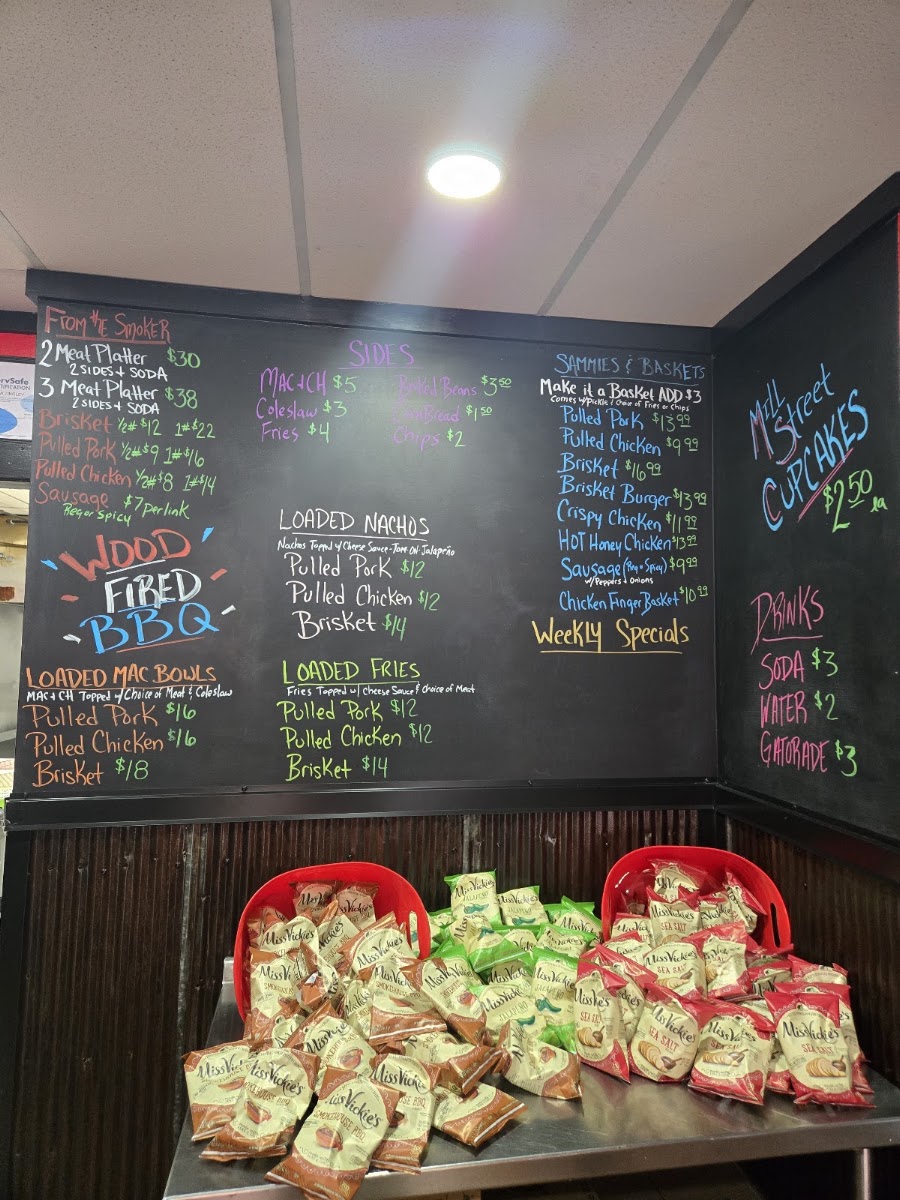 FROM the SMOKER
2 Meat Platter $30
2 SIDES + SODA
3 Meat Platter $38
2 SIDES + SODA
Brisket ½# $12 1# $22
Pulled Pork ½# $9 1# $16
Pulled Chicken ½# $8 1# $14
Sausage $7 per link
Reg or Spicy
WOOD
FIRED
BBQ
LOADED MAC BOWLS
MAC + CH Topped w/ Choice of Meat & Coleslaw
Pulled Pork $16
Pulled Chicken $16
Brisket $18
SIDES
MAC + CH $5
Coleslaw $3
Fries $4
Baked Beans $3.50
CornBread $1.50
Chips $2
LOADED NACHOS
Nachos Topped w/ Cheese Sauce - Tom - On - Jalapeño
Pulled Pork $12
Pulled Chicken $12
Brisket $14
LOADED FRIES
Fries Topped w/ Cheese Sauce & Choice of Meat
Pulled Pork $12
Pulled Chicken $12
Brisket $14
SAMMIES & BASKETS
Make it a Basket ADD $3
Comes w/ Pickle & Choice of Fries or Chips
Pulled Pork $13.99
Pulled Chicken $9.99
Brisket $16.99
Brisket Burger $13.99
Crispy Chicken $11.99
HOT Honey Chicken $13.99
Sausage (Reg or Spicy) $9.99
w/ Peppers + Onions
Chicken Finger Basket $10.99
Weekly Specials
Mill
Street
CUPCAKES
$2.50 ea
DRINKS
SODA $3
WATER $2
GATORADE $3
ervSafe
Miss Vickie's
JALAPEÑO
Miss Vickie's
SMOKEHOUSE BBQ
Miss Vickie's
SEA SALT